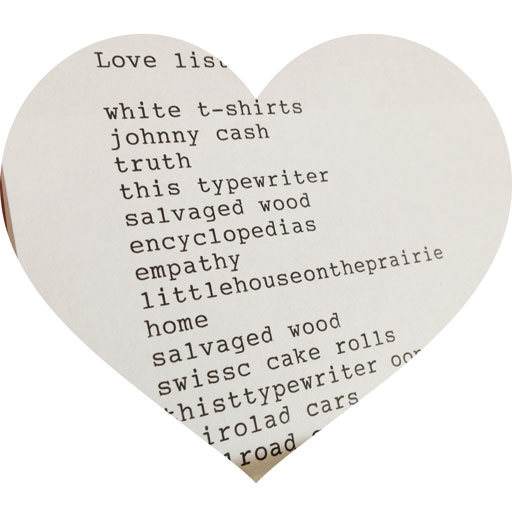 Love list
white t-shirts
johnny cash
truth
this typewriter
salvaged wood
encyclopedias
empathy
littlehouseontheprairie
home
salvaged wood
swissc cake rolls
thisttypewriter
irolad cars
road